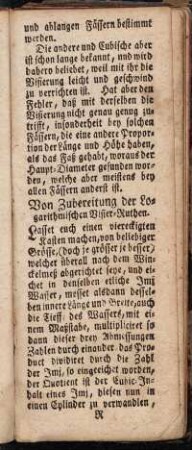 und ablangen Fässern bestimmt
werden.
Die andere und Cubische aber
ist schon lange bekannt, und wird
dahero beliebet, weil mit ihr die
Visierung leicht und geschwind
zu verrichten ist. Hat aber den
Fehler, daß mit derselben die
Visierung nicht genau genug zu-
trifft, insonderheit bey solchen
Fässern, die eine andere Propor-
tion der Länge und Höhe haben,
als das Faß gehabt, woraus der
Haupt-Diameter gefunden wor-
den, welche aber meistens bey
allen Fässern anderst ist.
Von Zubereitung der Lo-
garithmischen Visier-Ruthen.
Lasset euch einen viereckigten
Kasten machen, von beliebiger
Grösse, (doch je grösser je besser)
welcher überall nach dem Win-
ckelmeß abgerichtet seye, und ei-
chet in denselben etlich Imj
Wasser, messet alsdann dessel-
ben innere Länge und Breite, auch
die Tieff des Wassers, mit ei-
nem Maßstabe, multiplicirt so
dann dieser drey Abmessungen
Zahlen durch einander das Pro-
duct dividiret durch die Zahl
der Imj, so eingeeichet worden,
der Quotient ist der Cubic-In-
halt eines Imj, diesen nun in
einen Cylinder zu verwandlen,
R